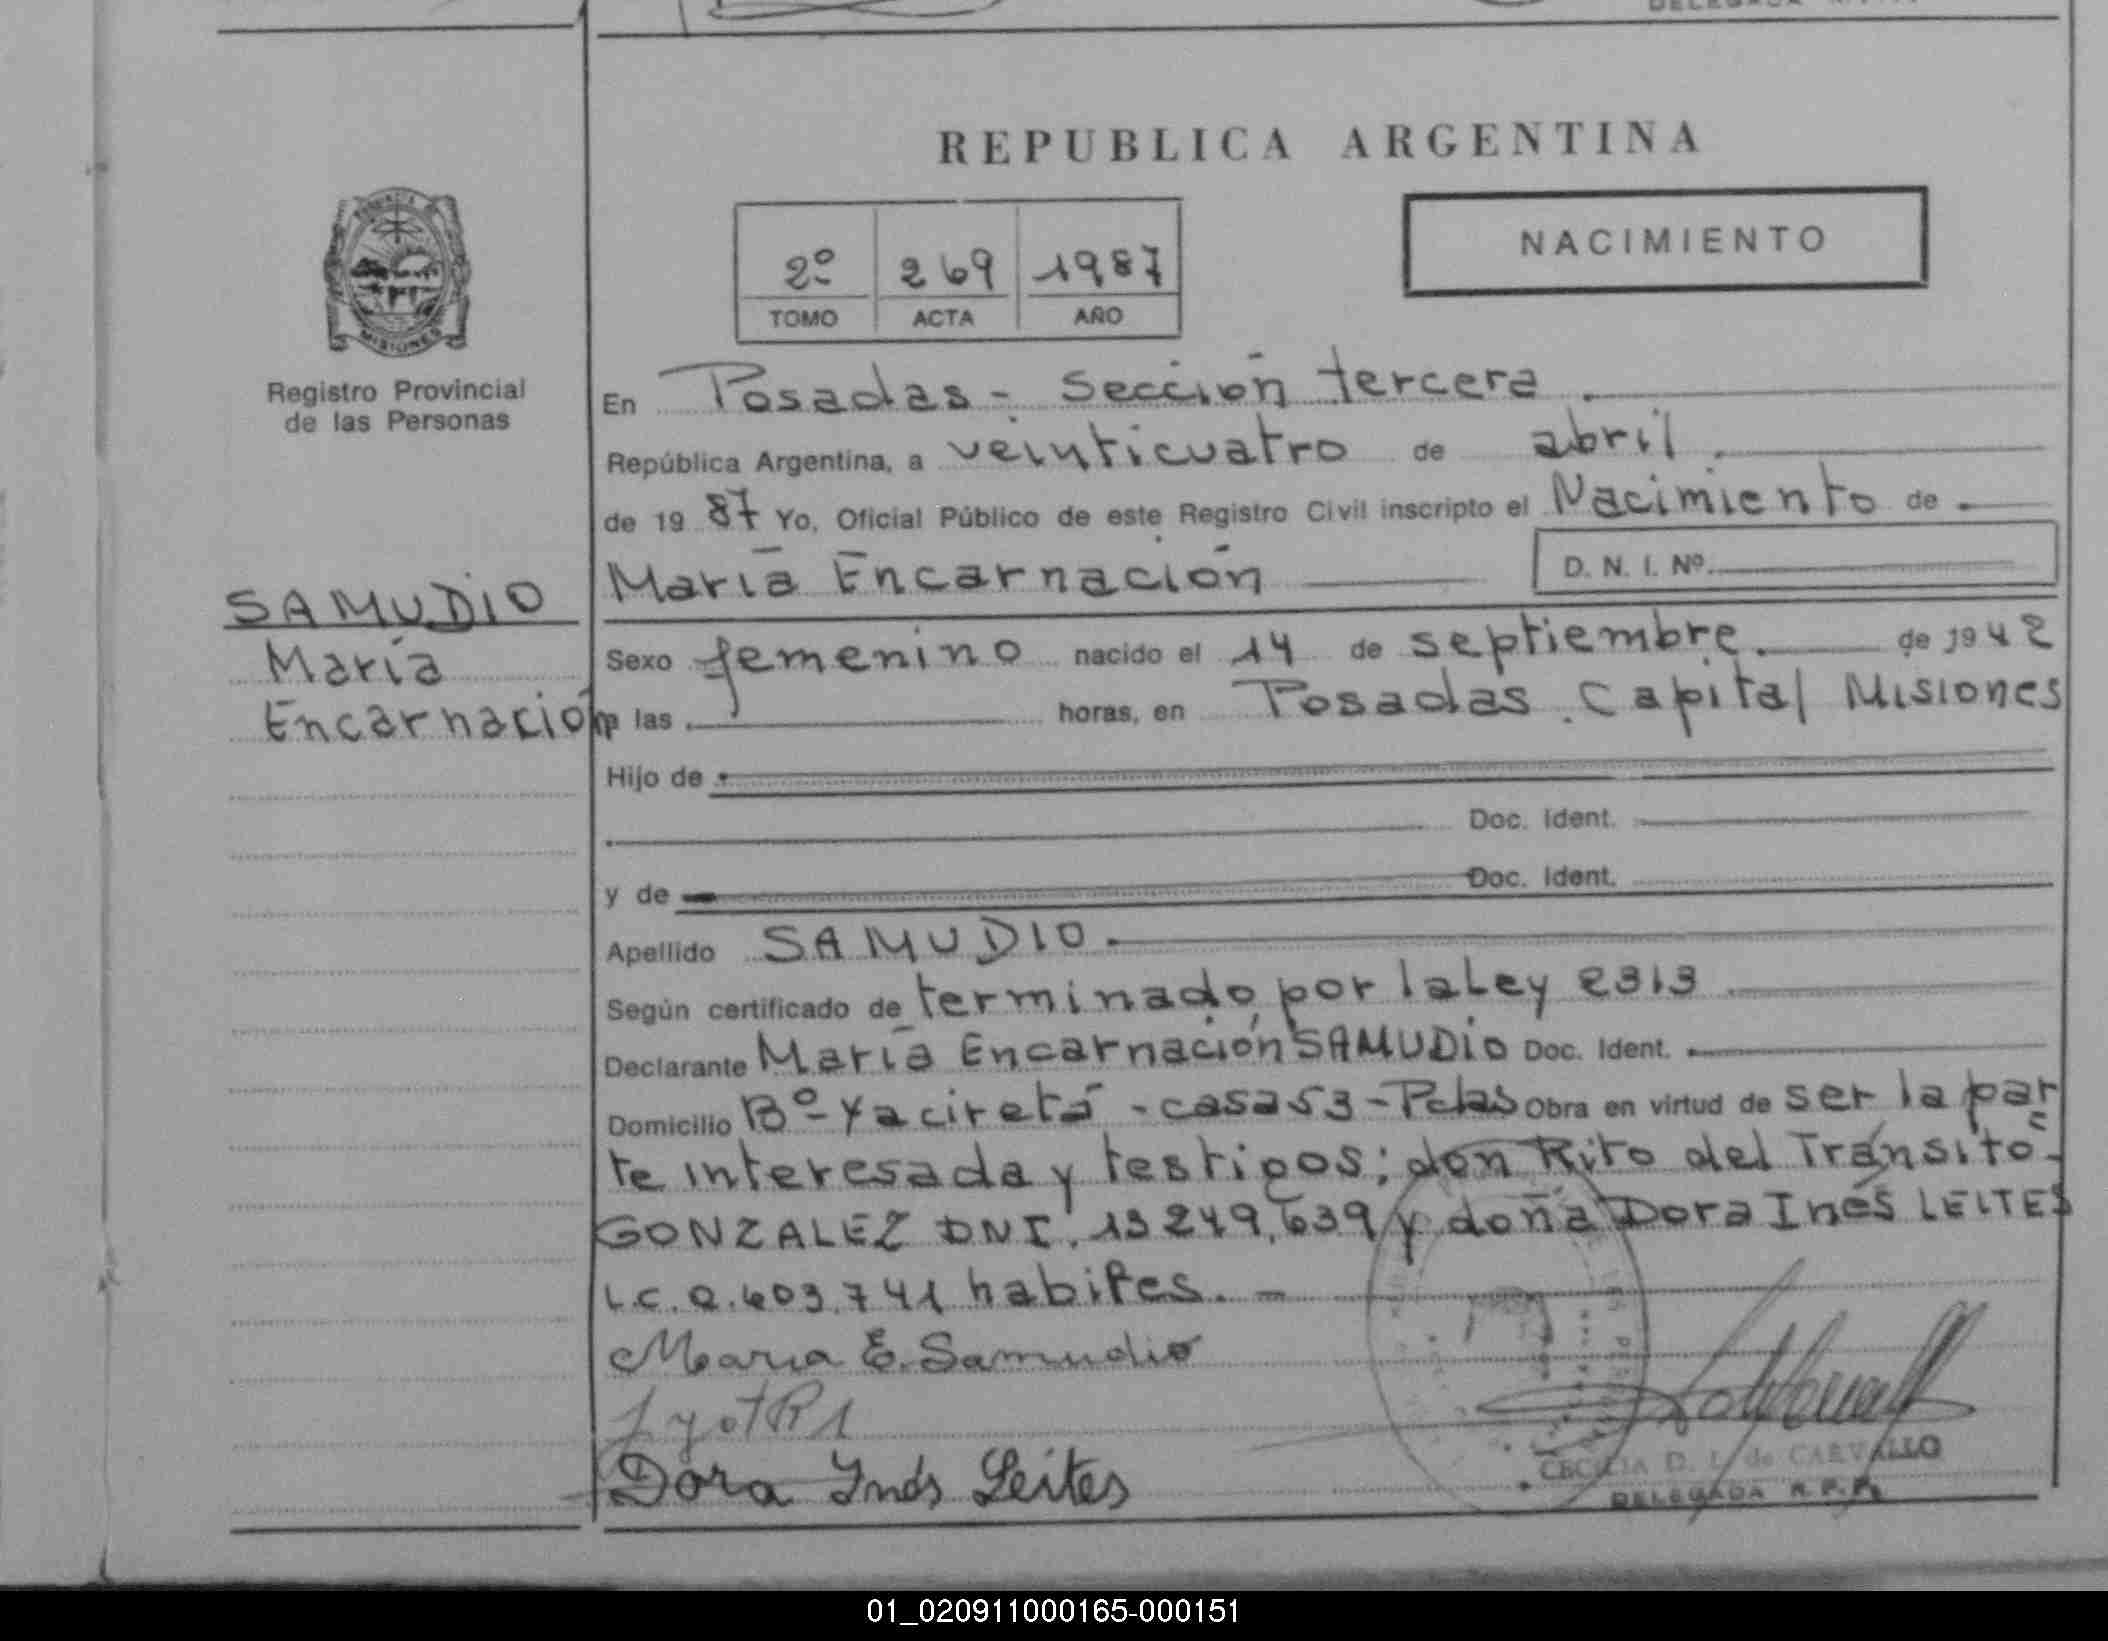 REPUBLICA ARGENTINA
NACIMIENTO
2º 269 1987
TOMO ACTA AÑO
MISIONES
Registro Provincial
de las Personas
SAMUDIO
María
Encarnación
En Posadas - Sección tercera.
República Argentina, a veinticuatro de abril.
de 1987 Yo, Oficial Público de este Registro Civil inscripto el Nacimiento de
María Encarnación
D. N. I. Nº
Sexo femenino nacido el 14 de septiembre. de 1942
a las horas, en Posadas. Capital Misiones
Hijo de
Doc. Ident.
y de Doc. Ident.
Apellido SAMUDIO.
Según certificado de terminado por la Ley 2313
Declarante María Encarnación SAMUDIO Doc. Ident.
Domicilio Bº - Yaciretá - casa 53 - Pdas Obra en virtud de ser la par
te interesada y testigos; don Rito del Tránsito
GONZALEZ DNI. 13 249.639 y doña Dora Inés LEITES
L.C. 2.603.741 habiles. -
Maria E. Samudio
Dora Inés Leites
CECILIA D. L. de CARVALLO
DELEGADA R.P.P.
01_020911000165-000151